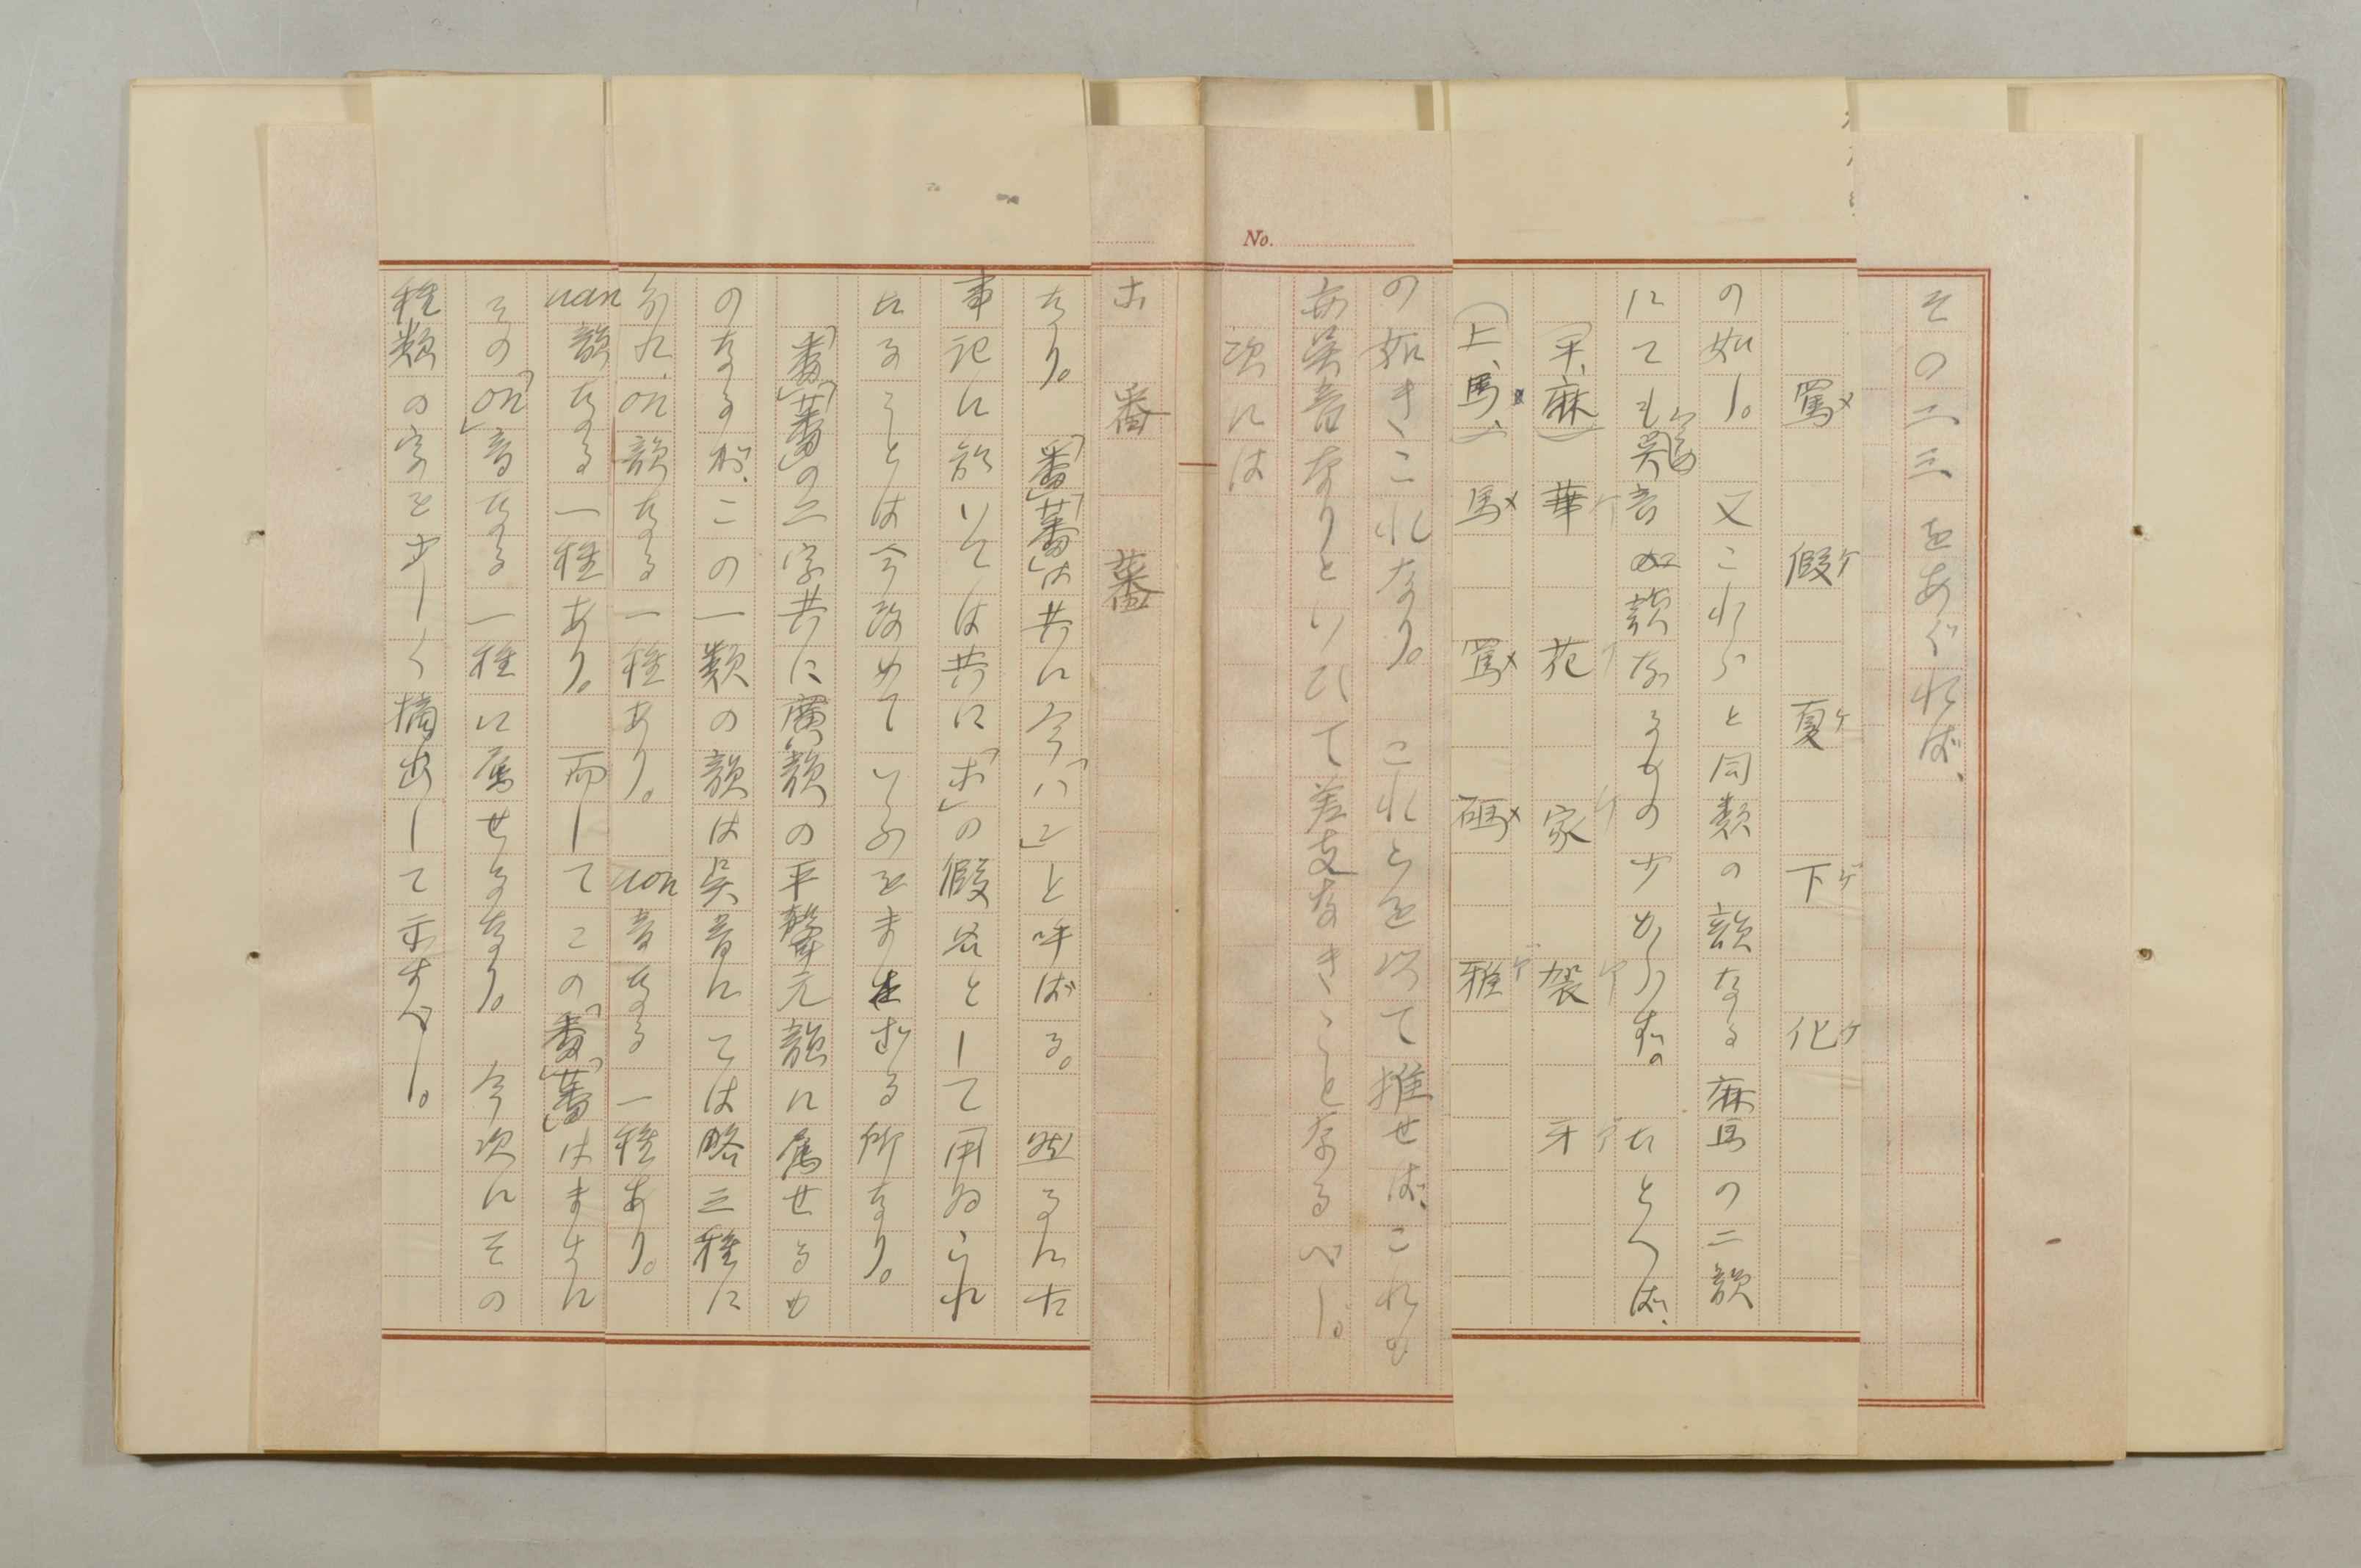 その二三をあぐれば、
罵メ 假ケ 夏ケ 下ゲ 化ケ
の如し。 又これらと同類の韻なる麻馬の二韻
にても呉音エ韻なるもの少からず。 たとへば、
(平、麻) 華ケ 花ケ 家ケ 袈ケ 牙ゲ
(上、馬) 馬メ 罵メ 碼メ 雅ゲ
No.
の如きこれなり。 これらを以て推せば、これも
亦呉音なりといひて差支なきことなるべし。
次には
ホ 番 蕃
なり。 「番」「蕃」は共に今「ハン」と呼ばる。 然るにた
事記に於いては共に「ホ」の假名として用ゐられ
たることは今改めていふをまたざる所なり。
「番」「蕃」の二字共に廣韻の平聲元韻に属せるも
のなるが、この一類の韻は呉音にては略三種に
分れ、on韻なる一種あり。 uon音なる一種あり。
uan韻なる一種あり。 而してこの「番」「蕃」はまさに
その「on」音なる一種に属せるなり。 今次にその
種類の字を少しく摘出して示すべし。